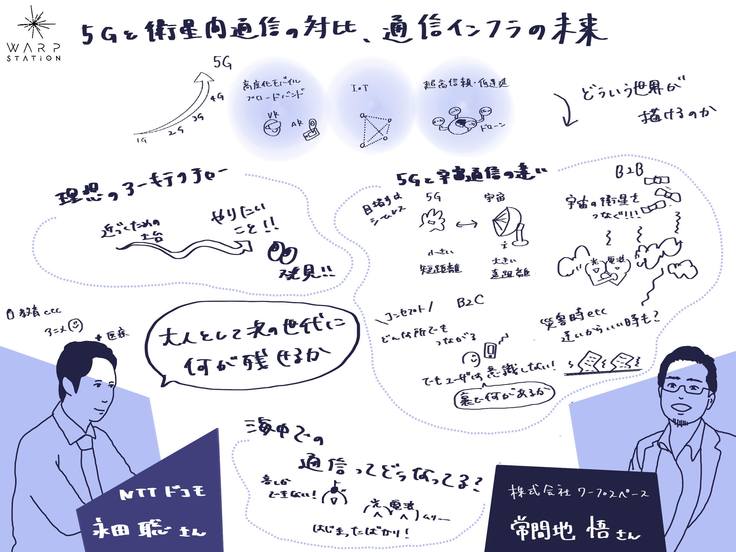 WARP
STATION
5Gと衛星内通信の対比、通信インフラの未来
5G
4G
3G
2G
1G
高度化モバイル
ブロードバンド
VR
AR
IoT
超高信頼・低遅延
ドローン
どういう世界が
描けるのか
理想のアーキテクチャー
近づくための
土台
やりたい
こと!!
発見!!
5Gと宇宙通信の違い
目指すは
シームレス
5G
宇宙
小さい
短距離
大きい
遠距離
B2B
宇宙の衛星を
つなぐ!!!
光
電波
コンセプト
B2C
どんな所でも
つながる
でもユーザは意識しない!
裏で何があるか
災害時etc
遠いからいい時も?
教育etc
アニメ
+医療
大人として次の世代に
何が残せるか
海中での
通信ってどうなってる?
音しか
できない!
光
電波
ムリー
はじまったばかり!
NTTドコモ
永田 聡さん
株式会社ワープスペース
常間地 悟さん